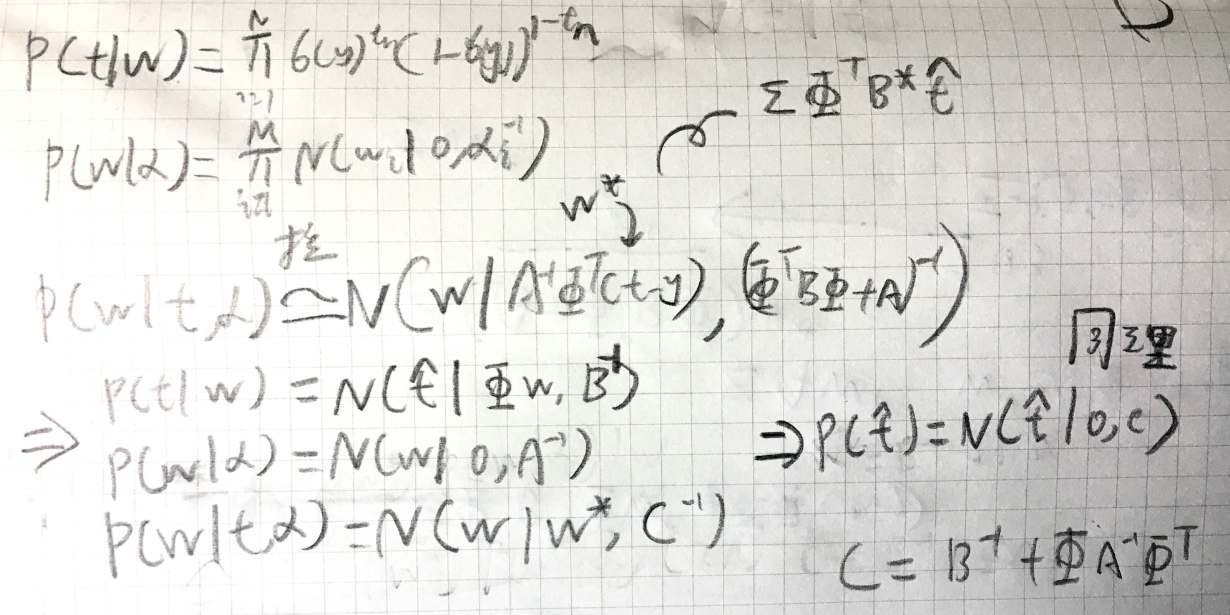 p(t|w) = ∏_{n=1}^{N} σ(y)^{t_n} (1-σ(y))^{1-t_n}
Σ Φ^T B* t̂
p(w|α) = ∏_{i=1}^{M} N(w_i | 0, α_i^{-1})
w*
推
p(w|t,α) ≃ N(w | A^{-1}Φ^T(t-y), (Φ^T BΦ+A)^{-1})
同理
p(t|w) = N(t̂ | Φw, B^{-1})
⇒ p(w|α) = N(w| 0, A^{-1}) ⇒ p(t̂) = N(t̂ | 0, C)
p(w|t,α) = N(w | w*, C^{-1})
C = B^{-1} + ΦA^{-1}Φ^T